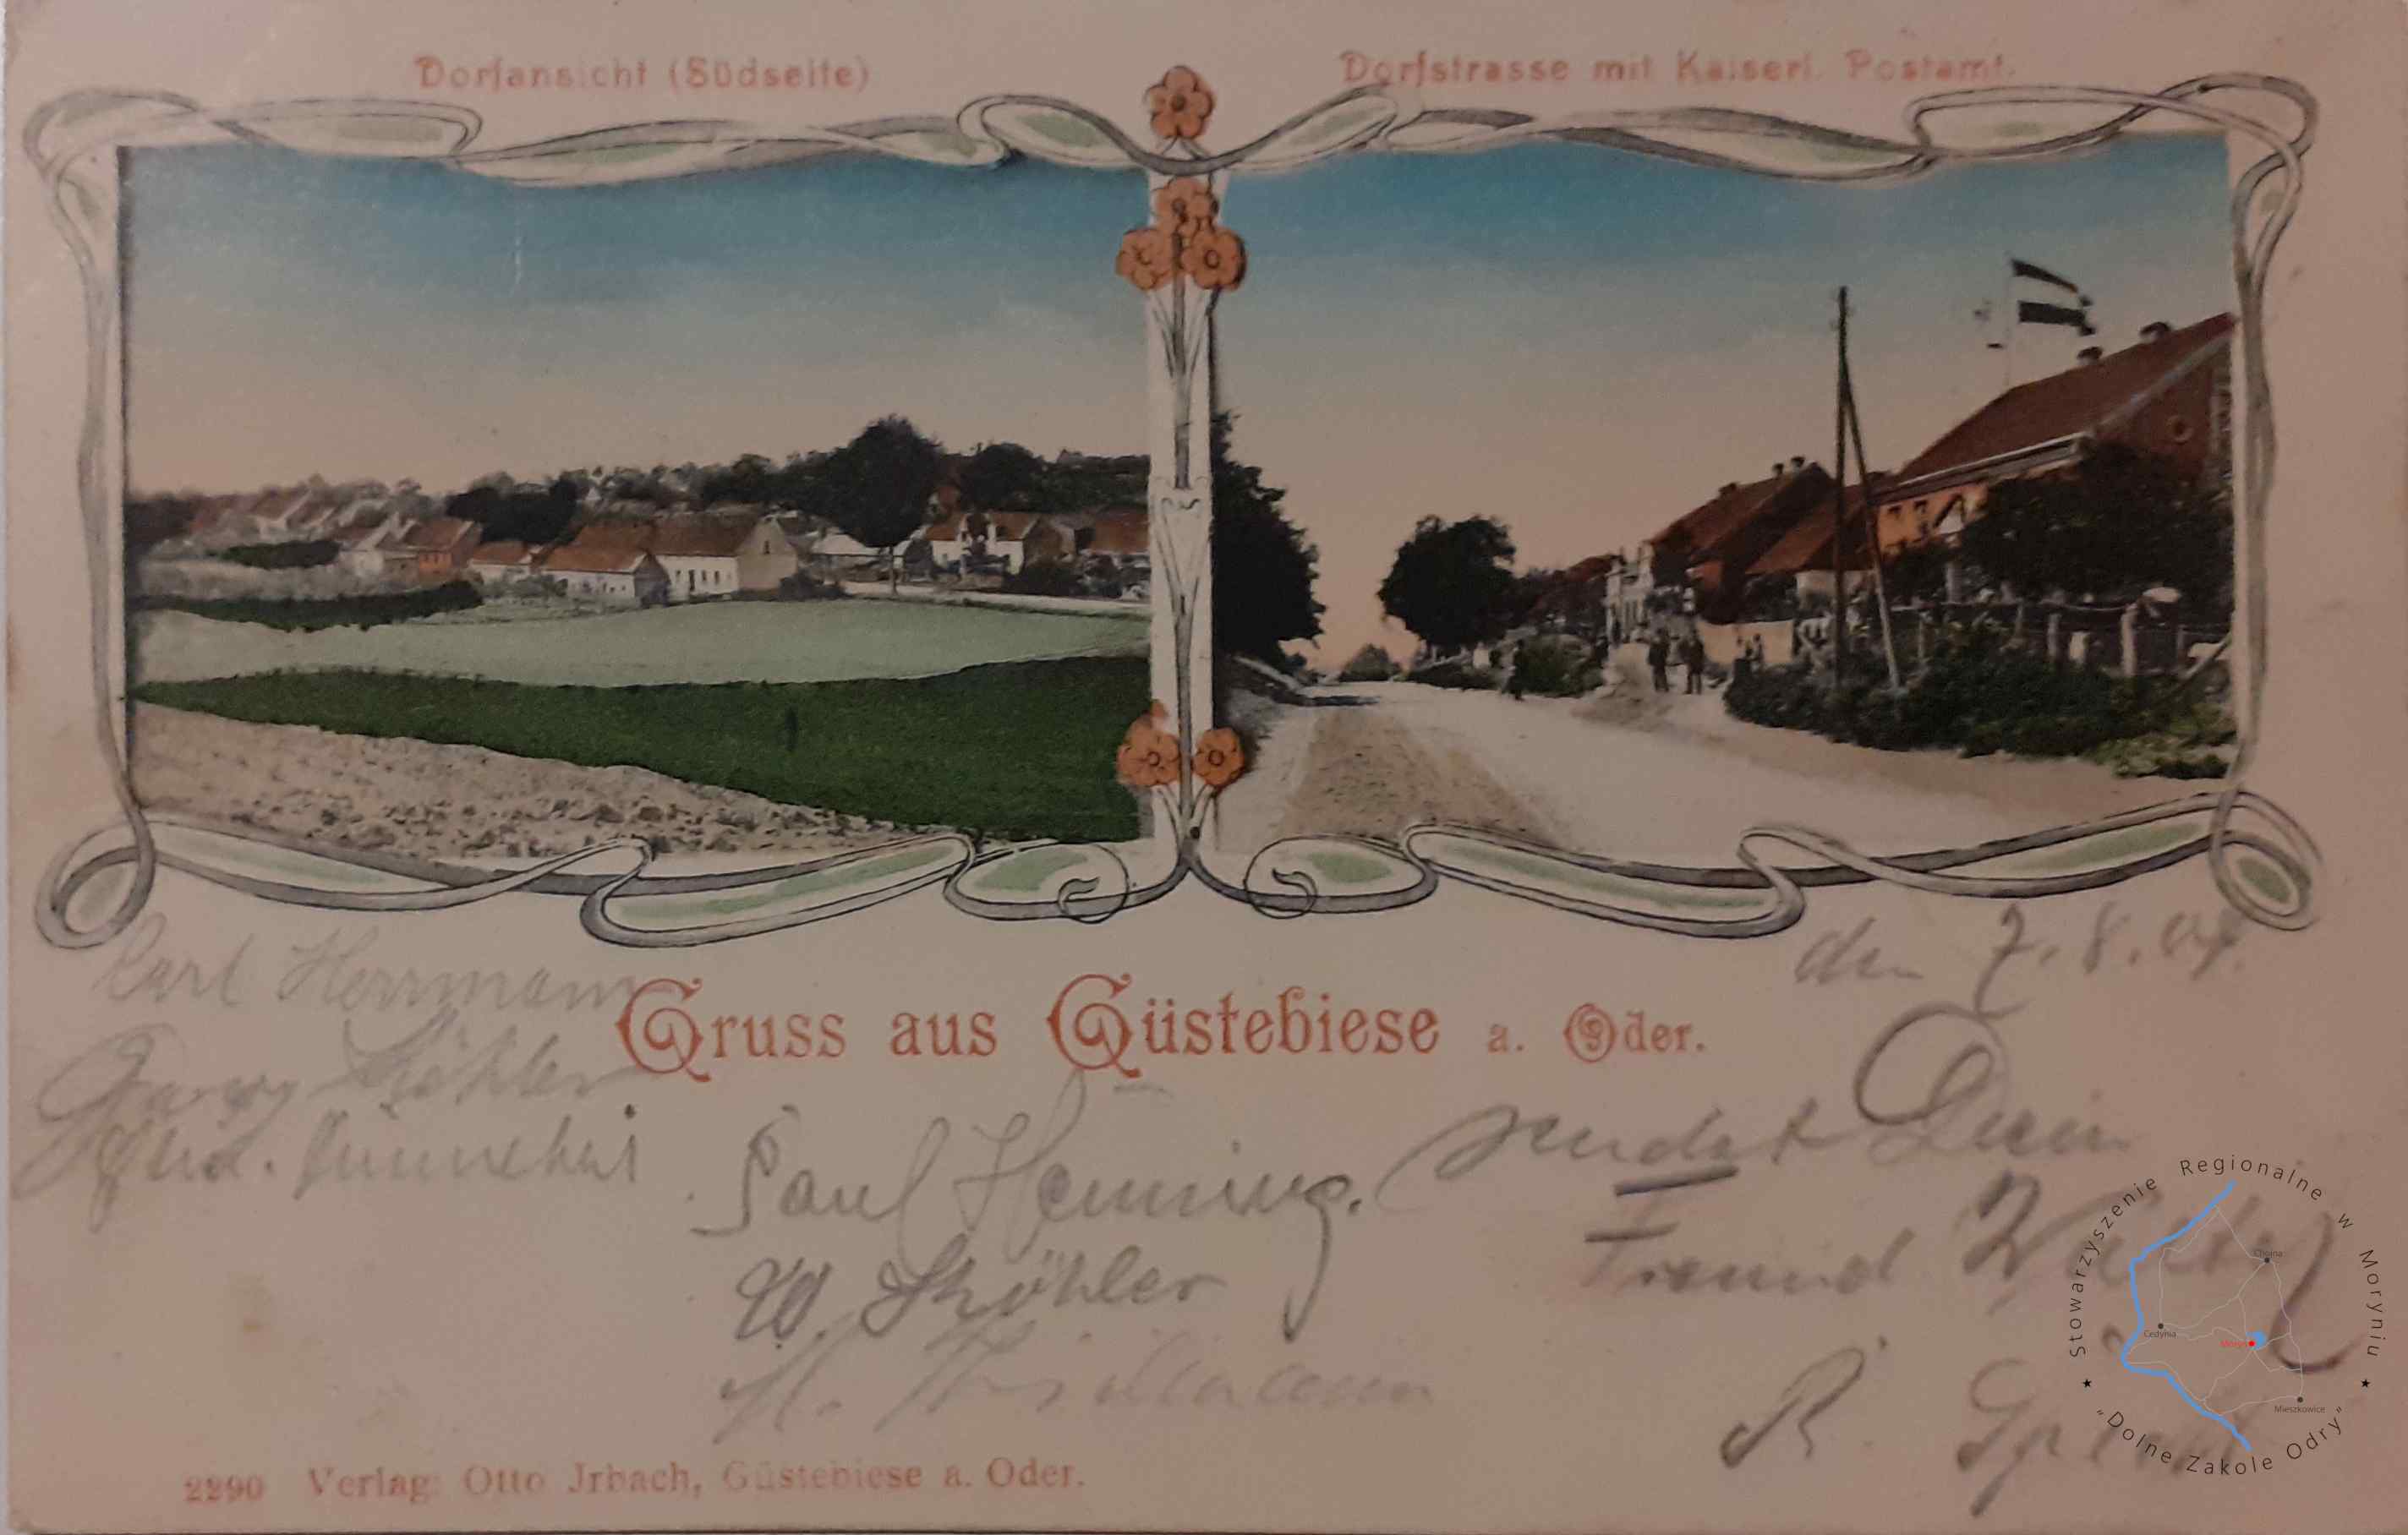 Dorfansicht (Südseite)
Dorfstrasse mit Kaiserl. Postamt.
den 7. 8. 04.
Carl Herrmann
Gruss aus Güstebiese a. Oder.
Köhler
Paul Henning.
sendet Dein
Freund
W. Köhler
R.
2290 Verlag: Otto Jrbach, Güstebiese a. Oder.
Stowarzyszenie Regionalne w Moryniu
"Dolne Zakole Odry"
Chojna
Cedynia
Moryń
Mieszkowice